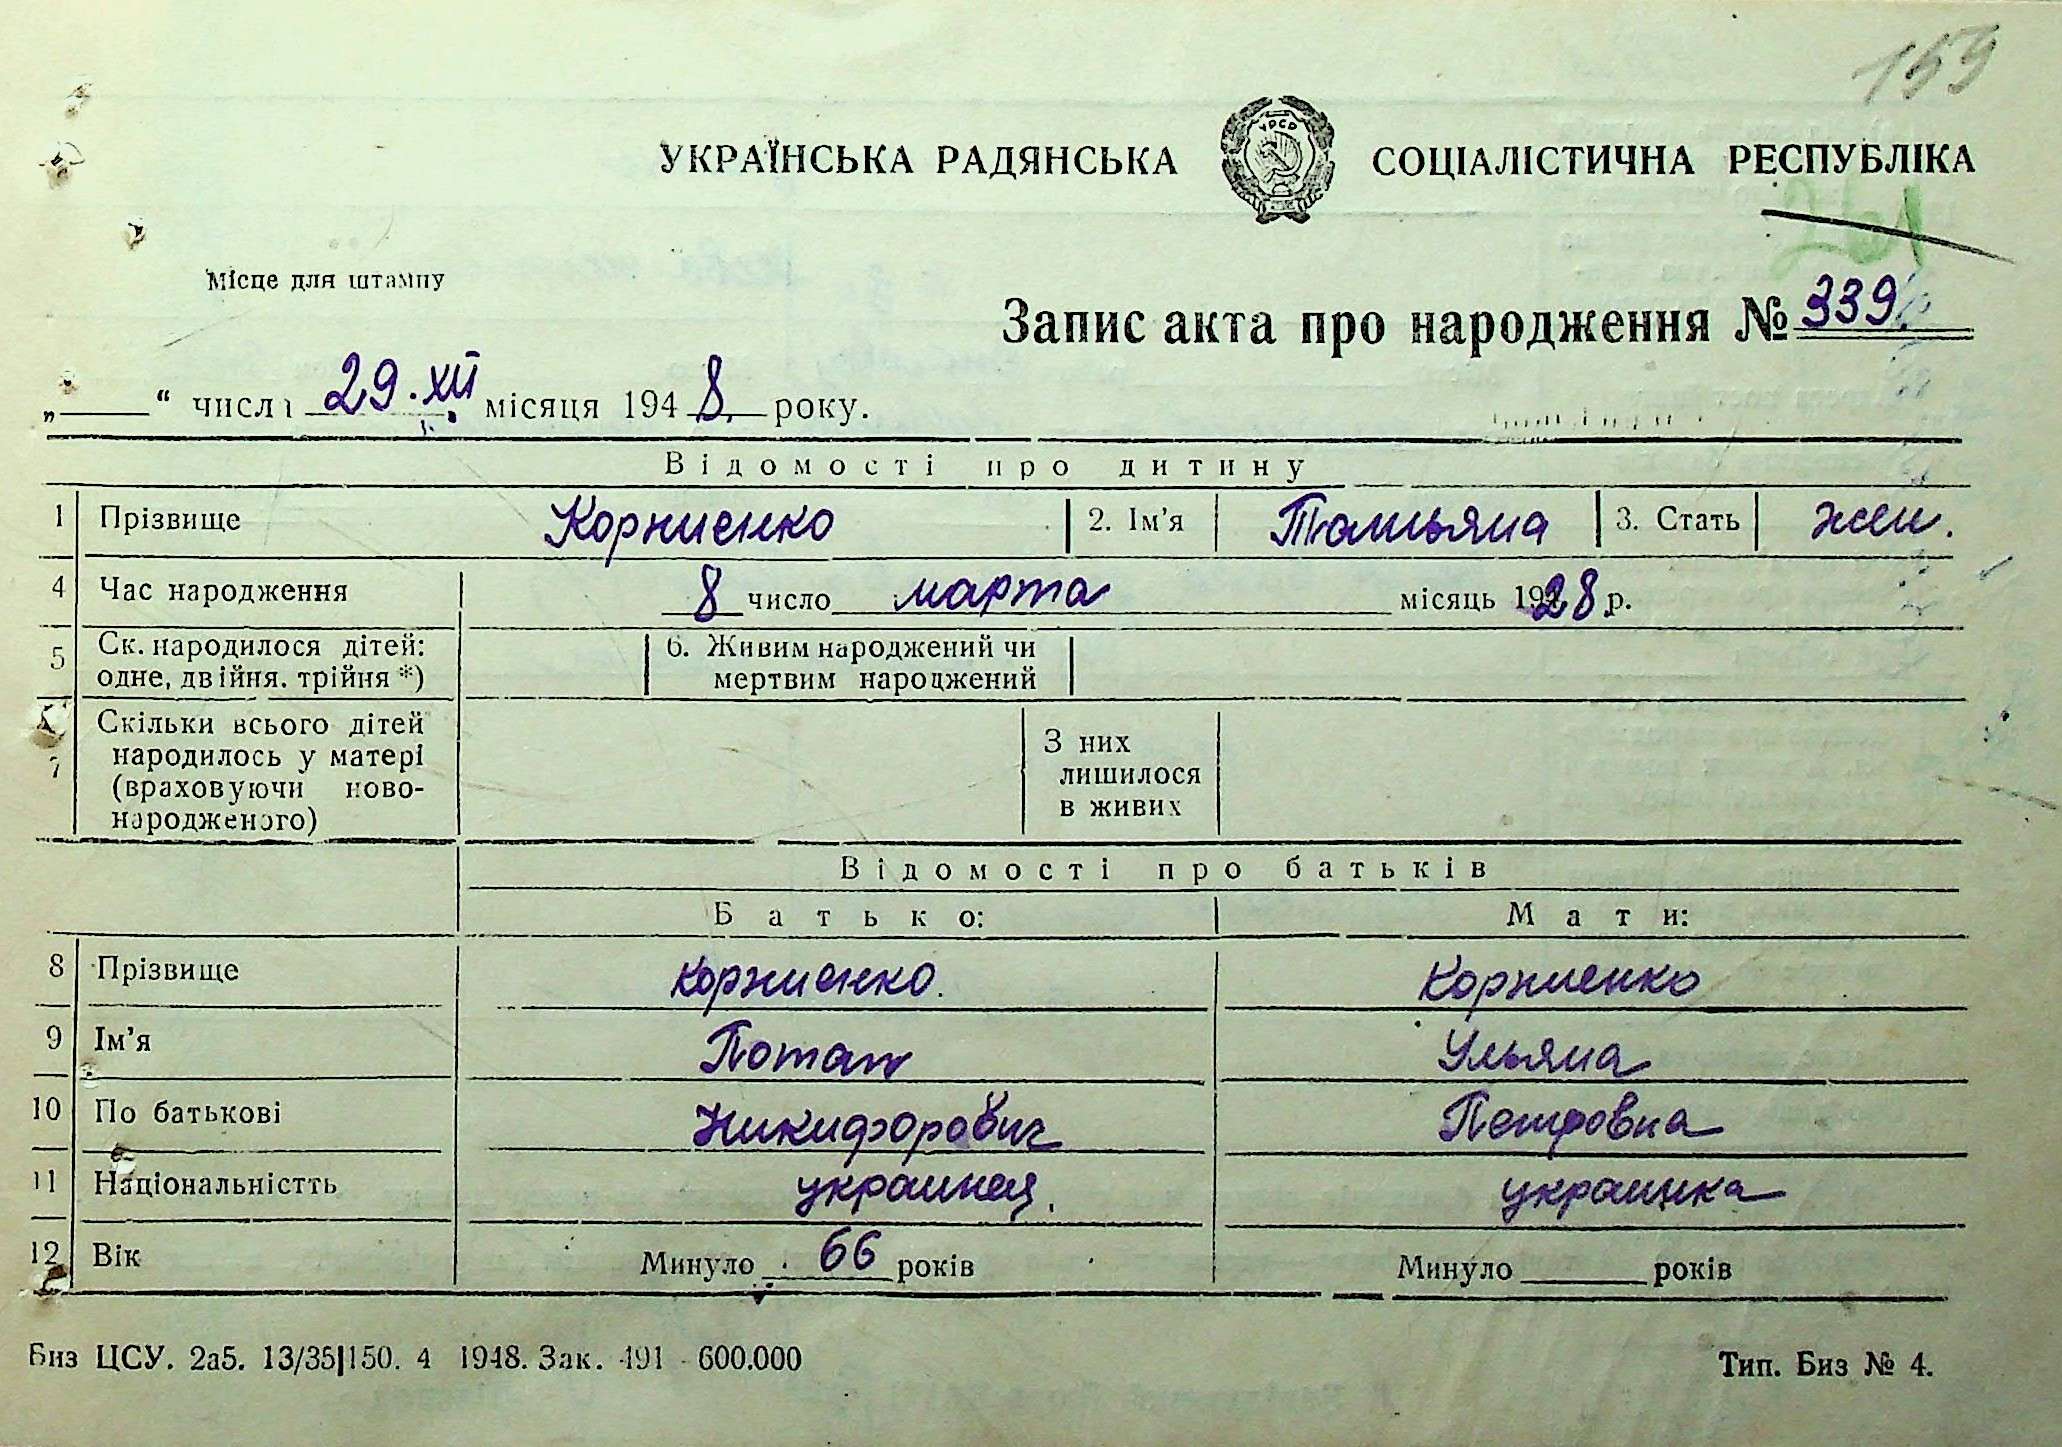 159
УКРАЇНСЬКА РАДЯНСЬКА СОЦІАЛІСТИЧНА РЕСПУБЛІКА
УРСР
Місце для штампу
Запис акта про народження № 339.
„ “ числа 29. XII місяця 1948. року.
Відомості про дитину
1 Прізвище Корниенко 2. Ім’я Татьяна 3. Стать жен.
4 Час народження 8 число марта місяць 1928 р.
5 Ск. народилося дітей: 6. Живим народжений чи
одне, двійня. трійня *) мертвим народжений
7 Скільки всього дітей
народилось у матері
(враховуючи ново-
народженого)
З них
лишилося
в живих
Відомості про батьків
Батько: Мати:
8 Прізвище Корниенко. Корниенко
9 Ім’я Потап Ульяна
10 По батькові Никифорович Петровна
11 Національністть украинец. украинка
12 Вік Минуло 66 років Минуло років
Биз ЦСУ. 2а5. 13/35|150. 4 1948. Зак. 491 - 600.000 Тип. Биз № 4.